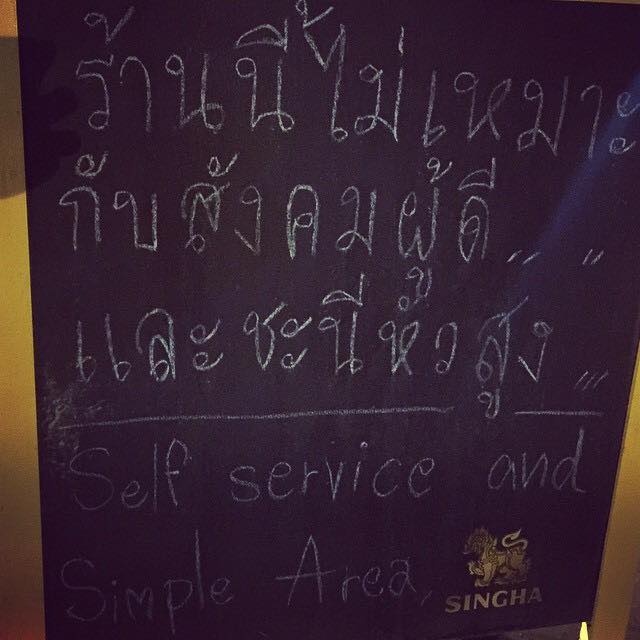 ร้านนี้ไม่เหมาะ
กับสังคมผู้ดี,, ,,
และชะนีหัวสูง,,,
Self service and
Simple Area,
SINGHA